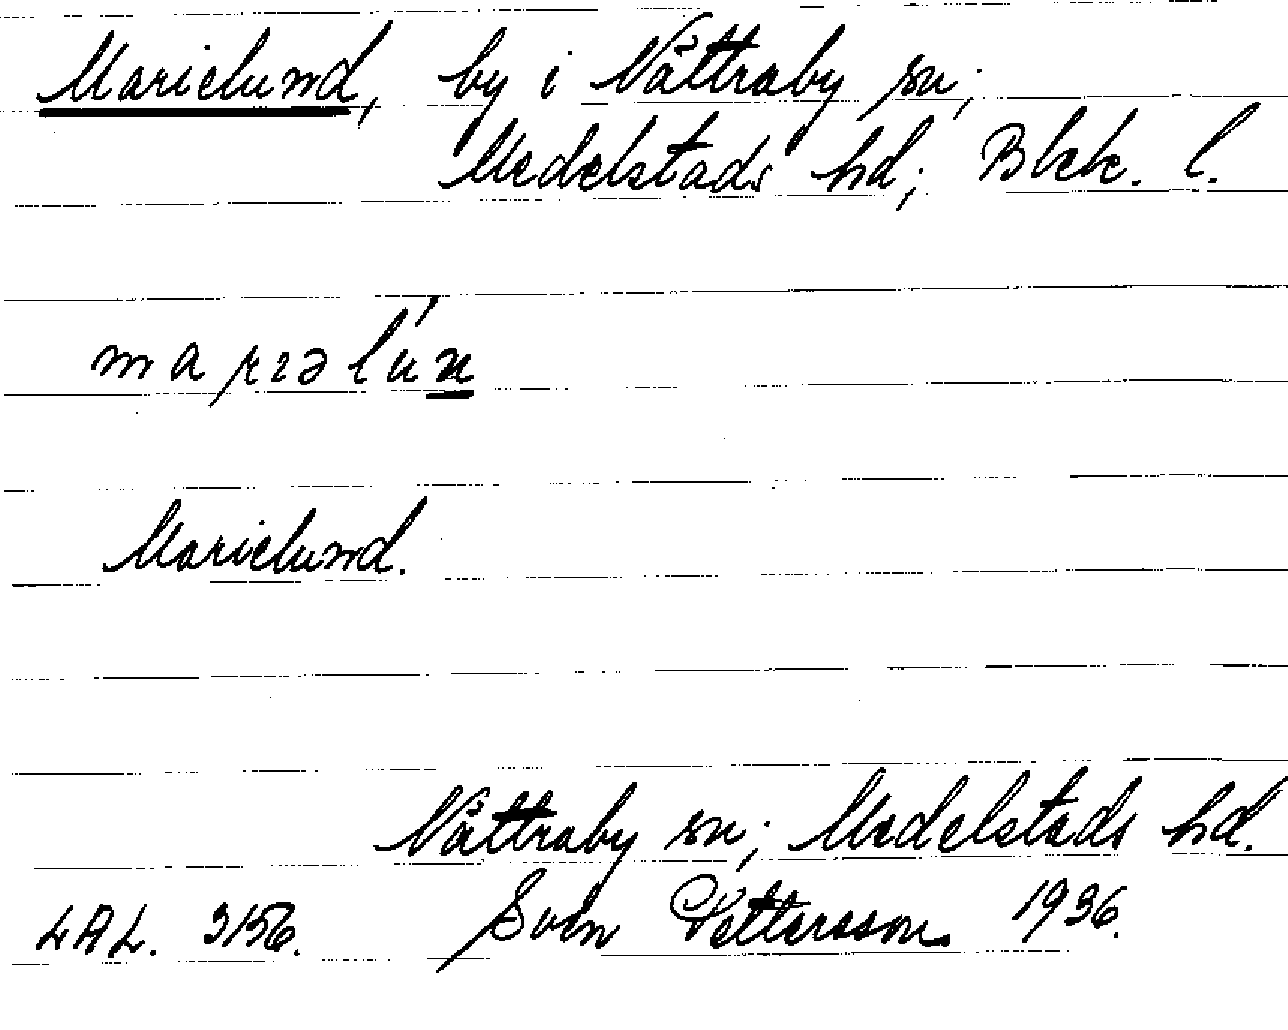 Marielund, by i Nättraby sn;
Medelstads hd; Blek. l.
marıəlún
Marielund.
Nättraby sn; Medelstads hd.
LAL. 3156. Sven Pettersson 1936.